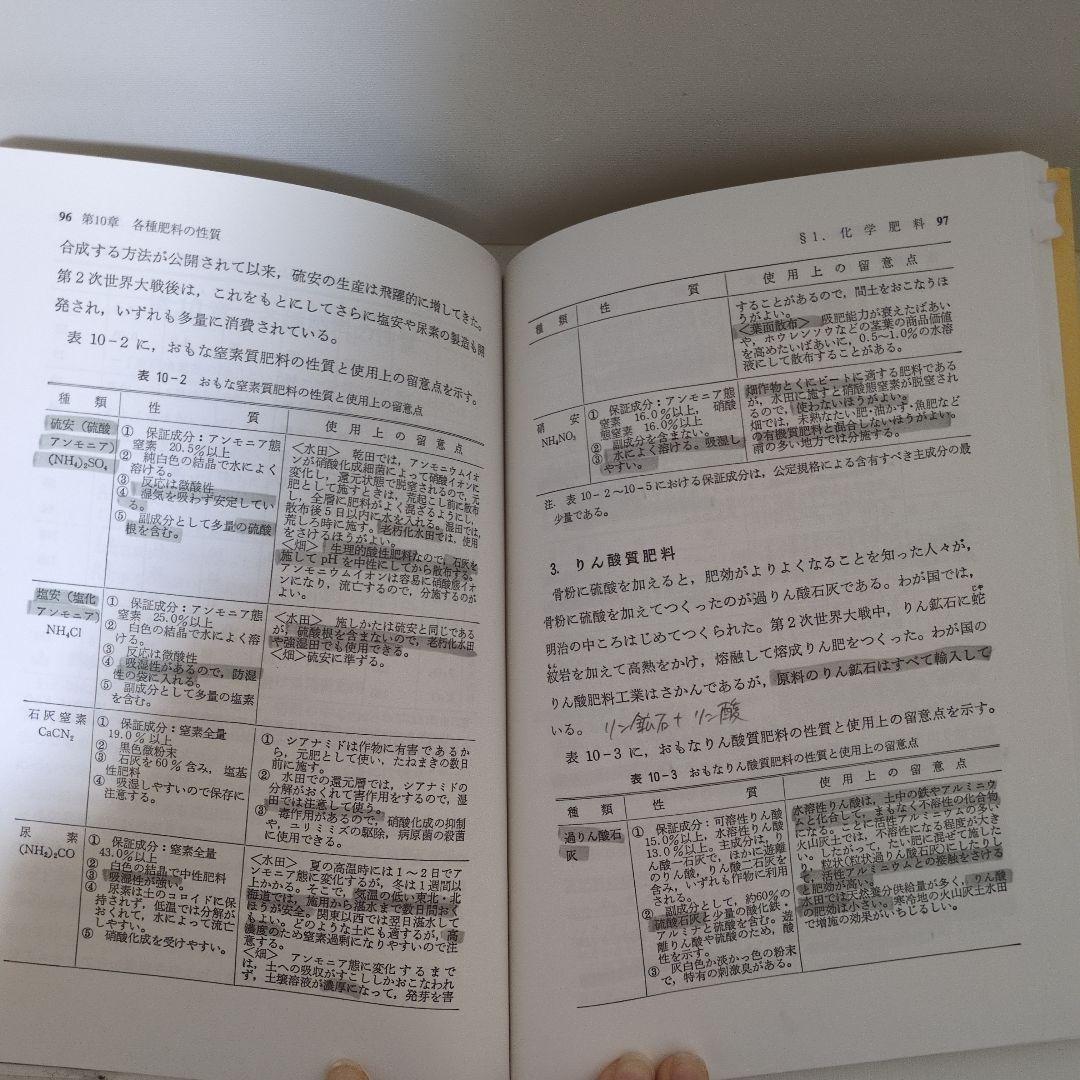 96 第10章 各種肥料の性質
合成する方法が公開されて以来，硫安の生産は飛躍的に増してきた。
第2次世界大戦後は，これをもとにしてさらに塩安や尿素の製造も開
発され，いずれも多量に消費されている。
表 10-2 に，おもな窒素質肥料の性質と使用上の留意点を示す。
表 10-2 おもな窒素質肥料の性質と使用上の留意点
種類 性質 使用上の留意点
硫安（硫酸
アンモニア）
(NH₄)₂SO₄
① 保証成分：アンモニア態
窒素 20.5％以上
② 純白色の結晶で水によく
溶ける。
③ 反応は微酸性
④ 湿気を吸わず安定してい
る。
⑤ 副成分として多量の硫酸
根を含む。
＜水田＞ 乾田では，アンモニウムイオ
ンが硝酸化成細菌によって硝酸イオンに
変化し，還元状態で脱窒されるので，元
肥として施すときは，荒起こし前に散布
し，全層に肥料がよく混ざるようにし，
散布後5日以内に水を入れる。湿田では，
荒しろ時に施す。老朽化水田では，使用
をさけるほうがよい。
＜畑＞ 生理的酸性肥料なので，石灰を
施して pH を中性にしてから散布する。
アンモニウムイオンは容易に硝酸態イオ
ンになり，流亡するので，分施するのが
よい。
塩安（塩化
アンモニア）
NH₄Cl
① 保証成分：アンモニア態
窒素 25.0％以上
② 白色の結晶で水によく溶
ける。
③ 反応は微酸性
④ 吸湿性があるので，防湿
性の袋に入れる。
⑤ 副成分として多量の塩素
を含む。
＜水田＞ 施しかたは硫安と同じである
が，硫酸根を含まないので，老朽化水田
や強湿田でも使用できる。
＜畑＞硫安に準ずる。
石灰窒素
CaCN₂
① 保証成分：窒素全量
19.0％以上
② 黒色微粉末
③ 石灰を60％含み，塩基
性肥料
④ 吸湿しやすいので保存に
注意する。
① シアナミドは作物に有害であるか
ら，元肥として使い，たねまきの数日
前に施す。
② 水田での還元層では，シアナミドの
分解がおくれて害作用をするので，湿
田では注意して使う。
③ 毒作用があるので，硝酸化成の抑制
や，ユリミミズの駆除，病原菌の殺菌
に使用できる。
尿素
(NH₂)₂CO
① 保証成分：窒素全量
43.0％以上
② 白色の結晶で中性肥料
③ 吸湿性が強い。
④ 尿素は土のコロイドに保
持されず，低温では分解が
おくれて，水によって流亡
しやすい。
⑤ 硝酸化成を受けやすい。
＜水田＞ 夏の高温時には1～2日でア
ンモニア態に変化するが，冬は1週間以
上かかる。そこで，気温の低い東北・北
海道では，施用から湛水まで数日間おく
ほうが安全。関東以西では翌日湛水して
もよい。どのような土にも適するが，高
濃度のため窒素過剰になりやすいので注
意する。
＜畑＞ アンモニア態に変化するまで
は，土への吸収がすこししかおこなわれ
ず，土壌溶液が濃厚になって，発芽を害
§1. 化学肥料 97
種類 性質 使用上の留意点
することがあるので，間土をおこなうほ
うがよい。
＜葉面散布＞ 吸肥能力が衰えたばあい
や，ホウレンソウなどの茎葉の商品価値
を高めたいばあいに，0.5～1.0％の水溶
液にして散布することがある。
硝安
NH₄NO₃
① 保証成分：アンモニア態
窒素 16.0％以上，硝酸
態窒素 16.0％以上
② 副成分を含まない。
③ 水によく溶ける。吸湿し
やすい。
畑作物とくにビートに適する肥料である
が，水田に施すと硝酸態窒素が脱窒され
るので，使わないほうがよい。
畑では，未熟なたい肥・油かす・魚肥など
の有機質肥料と混合しないほうがよい。
雨の多い地方では分施する。
注．表 10-2～10-5における保証成分は，公定規格による含有すべき主成分の最
少量である。
3. りん酸質肥料
骨粉に硫酸を加えると，肥効がよりよくなることを知った人々が，
骨粉に硫酸を加えてつくったのが過りん酸石灰である。わが国では，
明治の中ころはじめてつくられた。第2次世界大戦中，りん鉱石に蛇
じゃ
紋岩を加えて高熱をかけ，熔融して熔成りん肥をつくった。わが国の
もん
りん酸肥料工業はさかんであるが，原料のりん鉱石はすべて輸入して
いる。 リン鉱石+リン酸
表 10-3 に，おもなりん酸質肥料の性質と使用上の留意点を示す。
表 10-3 おもなりん酸質肥料の性質と使用上の留意点
種類 性質 使用上の留意点
過りん酸石
灰
① 保証成分：可溶性りん酸
15.0％以上，水溶性りん酸
13.0％以上。主成分は，り
ん酸一石灰で，ほかに遊離
のりん酸，りん酸二石灰を
含み，いずれも作物に利用
② 副成分として，約60％の
硫酸石灰と少量の酸化鉄・
アルミナと硫酸を含む。遊
離りん酸や硫酸のため，酸
性を示す。
③ 灰白色か淡かっ色の粉末
で，特有の刺激臭がある。
水溶性りん酸は，土中の鉄やアルミニウ
ムと化合し，まもなく不溶性の化合物
になる。ことに活性アルミニウムの多い
火山灰土では，不溶性になる程度が大き
い。したがって，たい肥に混ぜて施した
り，粒状(粒状過りん酸石灰)にしたりし
て，活性アルミニウムとの接触をさける
と肥効が高い。
水田では天然養分供給量が多く，りん酸
の肥効は小さい。寒冷地の火山灰土水田
で増施の効果がいちじるしい。